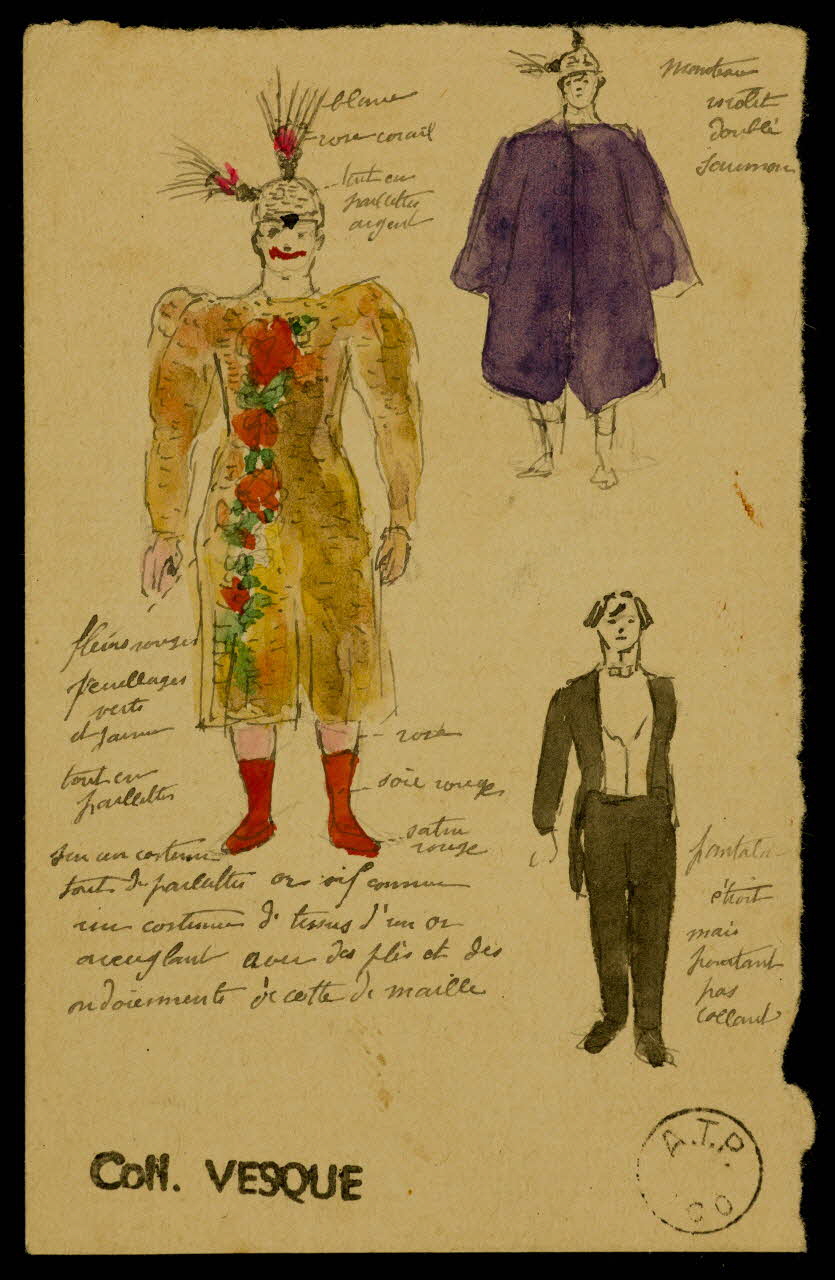 blanc
rose corail
tout en
paillettes
argent
manteau
violet
doublé
saumon
fleurs rouges
feuillages
verts
et jaune
tout en
paillettes
rose
soie rouge
satin
rouge
sur un costume
tout de paillettes or vif comme
un costume de tissus d'un or
aveuglant avec des plis et des
ondoiements de cotte de maille
pantalon
étroit
mais
pourtant
pas
collant
Coll. VESQUE
A.T.P.